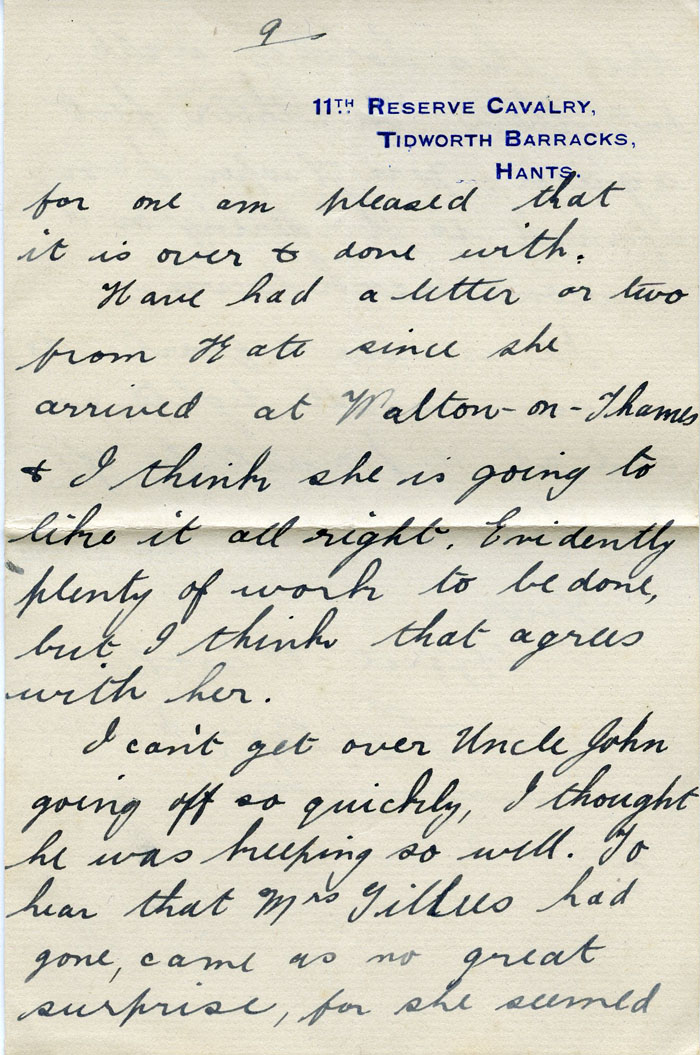 9
11TH RESERVE CAVALRY,
TIDWORTH BARRACKS,
HANTS.
for one am pleased that
it is over & done with.
Have had a letter or two
from Kate since she
arrived at Walton-on-Thames
& I think she is going to
like it all right. Evidently
plenty of work to be done,
but I think that agrees
with her.
I can't get over Uncle John
going off so quickly, I thought
he was keeping so well. To
hear that Mrs Gillies had
gone, came as no great
surprise, for she seemed